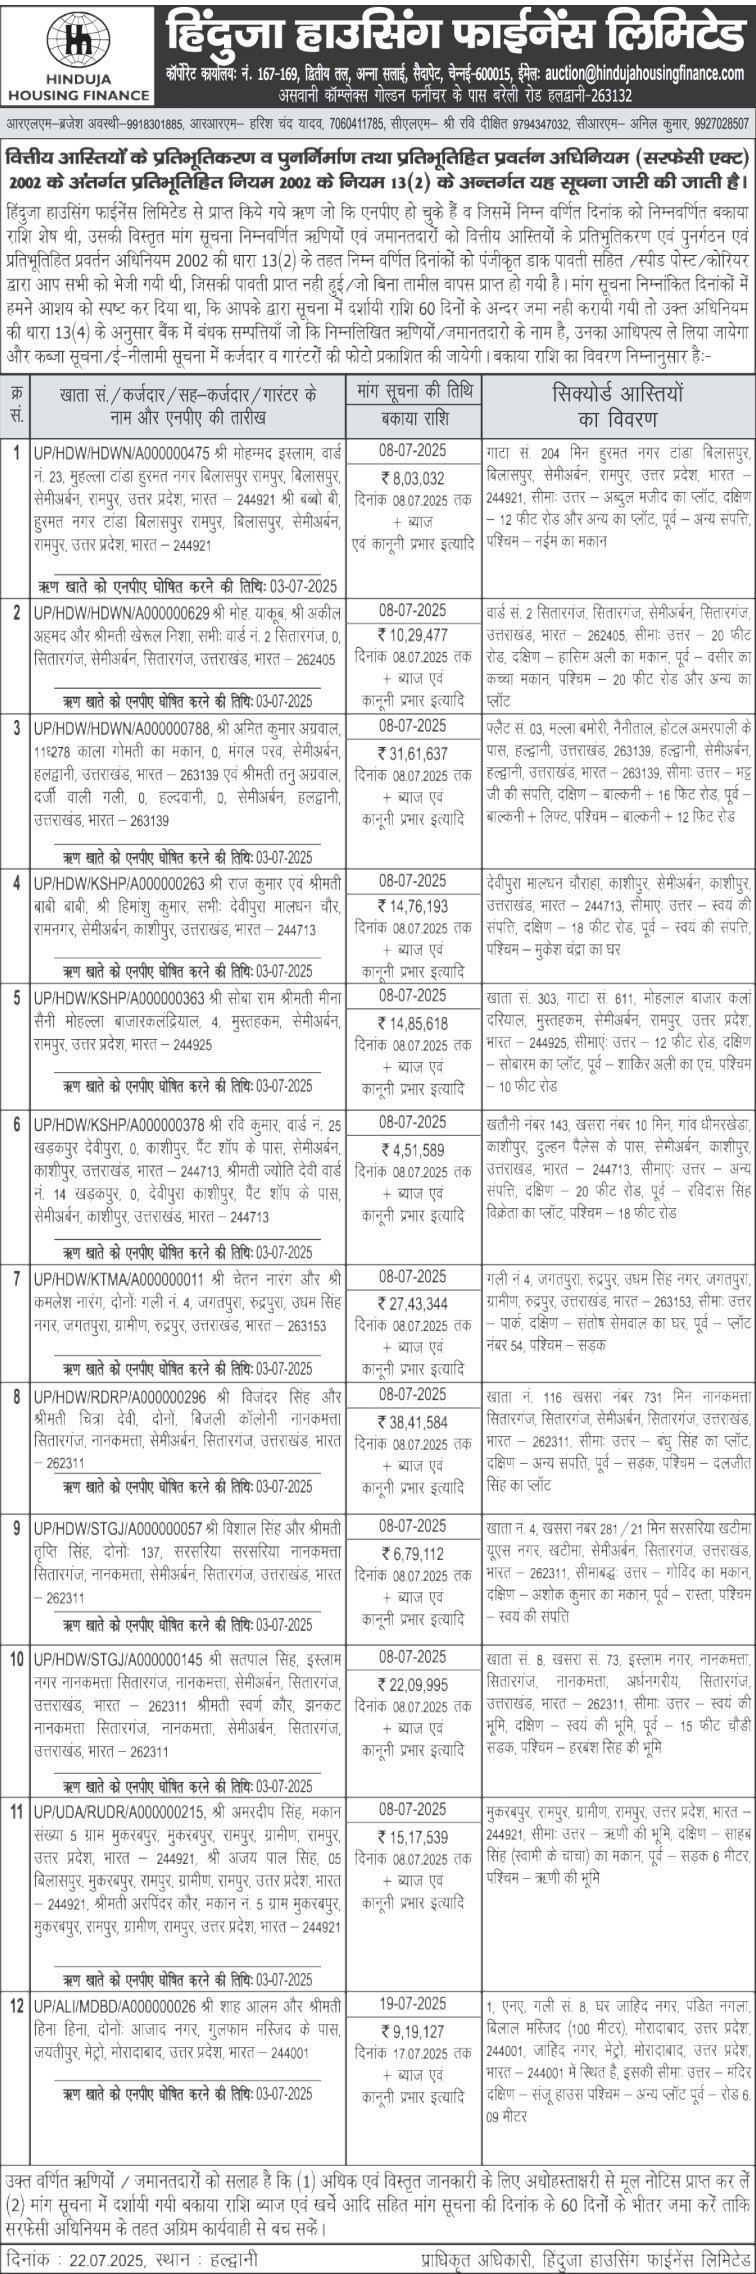 HINDUJA
HOUSING FINANCE
हिंदुजा हाउसिंग फाईनेंस लिमिटेड
कॉर्पोरेट कार्यालयः नं. 167-169, द्वितीय तल, अन्ना सलाई, सैदापेट, चेन्नई-600015, ईमेलः auction@hindujahousingfinance.com
असवानी कॉम्पलेक्स गोल्डन फर्नीचर के पास बरेली रोड हलद्वानी-263132
आरएलएम–ब्रजेश अवस्थी–9918301885, आरआरएम– हरिश चंद यादव, 7060411785, सीएलएम– श्री रवि दीक्षित 9794347032, सीआरएम– अनिल कुमार, 9927028507
वित्तीय आस्तियों के प्रतिभूतिकरण व पुनर्निर्माण तथा प्रतिभूतिहित प्रवर्तन अधिनियम (सरफेसी एक्ट)
2002 के अंतर्गत प्रतिभूतिहित नियम 2002 के नियम 13(2) के अन्तर्गत यह सूचना जारी की जाती है।
हिंदुजा हाउसिंग फाईनेंस लिमिटेड से प्राप्त किये गये ऋण जो कि एनपीए हो चुके हैं व जिसमें निम्न वर्णित दिनांक को निम्नवर्णित बकाया
राशि शेष थी, उसकी विस्तृत मांग सूचना निम्नवर्णित ऋणियों एवं जमानतदारों को वित्तीय आस्तियों के प्रतिभुतिकरण एवं पुनर्गठन एवं
प्रतिभूतिहित प्रवर्तन अधिनियम 2002 की धारा 13(2) के तहत निम्न वर्णित दिनांकों को पंजीकृत डाक पावती सहित /स्पीड पोस्ट/कोरियर
द्वारा आप सभी को भेजी गयी थी, जिसकी पावती प्राप्त नही हुई/जो बिना तामील वापस प्राप्त हो गयी है। मांग सूचना निम्नांकित दिनांकों में
हमने आशय को स्पष्ट कर दिया था, कि आपके द्वारा सूचना में दर्शायी राशि 60 दिनों के अन्दर जमा नही करायी गयी तो उक्त अधिनियम
की धारा 13(4) के अनुसार बैंक में बंधक सम्पत्तियाँ जो कि निम्नलिखित ऋणियों/जमानतदारो के नाम है, उनका आधिपत्य ले लिया जायेगा
और कब्जा सूचना/ई-नीलामी सूचना में कर्जदार व गारंटरों की फोटो प्रकाशित की जायेगी। बकाया राशि का विवरण निम्नानुसार है:-
क्र सं.
खाता सं./कर्जदार/सह-कर्जदार/गारंटर के
नाम और एनपीए की तारीख
मांग सूचना की तिथि
बकाया राशि
सिक्योर्ड आस्तियों
का विवरण
1
UP/HDW/HDWN/A000000475 श्री मोहम्मद इस्लाम, वार्ड
नं. 23, मुहल्ला टांडा हुरमत नगर बिलासपुर रामपुर, बिलासपुर,
सेमीअर्बन, रामपुर, उत्तर प्रदेश, भारत – 244921 श्री बब्बो बी,
हुरमत नगर टांडा बिलासपुर रामपुर, बिलासपुर, सेमीअर्बन,
रामपुर, उत्तर प्रदेश, भारत – 244921
ऋण खाते को एनपीए घोषित करने की तिथिः 03-07-2025
08-07-2025
₹ 8,03,032
दिनांक 08.07.2025 तक
+ ब्याज
एवं कानूनी प्रभार इत्यादि
गाटा सं. 204 मिन हुरमत नगर टांडा बिलासपुर,
बिलासपुर, सेमीअर्बन, रामपुर, उत्तर प्रदेश, भारत –
244921, सीमाः उत्तर – अब्दुल मजीद का प्लॉट, दक्षिण
– 12 फीट रोड और अन्य का प्लॉट, पूर्व – अन्य संपत्ति,
पश्चिम – नईम का मकान
2
UP/HDW/HDWN/A000000629 श्री मोह. याकूब, श्री अकील
अहमद और श्रीमती खेरूल निशा, सभीः वार्ड नं. 2 सितारगंज, 0,
सितारगंज, सेमीअर्बन, सितारगंज, उत्तराखंड, भारत – 262405
ऋण खाते को एनपीए घोषित करने की तिथिः 03-07-2025
08-07-2025
₹ 10,29,477
दिनांक 08.07.2025 तक
+ ब्याज एवं
कानूनी प्रभार इत्यादि
वार्ड सं. 2 सितारगंज, सितारगंज, सेमीअर्बन, सितारगंज,
उत्तराखंड, भारत – 262405, सीमाः उत्तर – 20 फीट
रोड, दक्षिण – हासिम अली का मकान, पूर्व – वसीर का
कच्चा मकान, पश्चिम – 20 फीट रोड और अन्य का
प्लॉट
3
UP/HDW/HDWN/A000000788, श्री अमित कुमार अग्रवाल,
11ध278 काला गोमती का मकान, 0, मंगल परव, सेमीअर्बन,
हलद्वानी, उत्तराखंड, भारत – 263139 एवं श्रीमती तनु अग्रवाल,
दर्जी वाली गली, 0, हल्दवानी, 0, सेमीअर्बन, हलद्वानी,
उत्तराखंड, भारत – 263139
ऋण खाते को एनपीए घोषित करने की तिथिः 03-07-2025
08-07-2025
₹ 31,61,637
दिनांक 08.07.2025 तक
+ ब्याज एवं
कानूनी प्रभार इत्यादि
फ्लैट सं. 03, मल्ला बमोरी, नैनीताल, होटल अमरपाली के
पास, हल्द्वानी, उत्तराखंड, 263139, हल्द्वानी, सेमीअर्बन,
हल्द्वानी, उत्तराखंड, भारत – 263139, सीमाः उत्तर – भट्ट
जी की संपत्ति, दक्षिण – बाल्कनी + 16 फिट रोड, पूर्व –
बाल्कनी + लिफ्ट, पश्चिम – बाल्कनी + 12 फिट रोड
4
UP/HDW/KSHP/A000000263 श्री राज कुमार एवं श्रीमती
बाबी बाबी, श्री हिमांशु कुमार, सभीः देवीपुरा मालधन चौर,
रामनगर, सेमीअर्बन, काशीपुर, उत्तराखंड, भारत – 244713
ऋण खाते को एनपीए घोषित करने की तिथिः 03-07-2025
08-07-2025
₹ 14,76,193
दिनांक 08.07.2025 तक
+ ब्याज एवं
कानूनी प्रभार इत्यादि
देवीपुरा मालधन चौराहा, काशीपुर, सेमीअर्बन, काशीपुर,
उत्तराखंड, भारत – 244713, सीमाएंः उत्तर – स्वयं की
संपत्ति, दक्षिण – 18 फीट रोड, पूर्व – स्वयं की संपत्ति,
पश्चिम – मुकेश चंद्रा का घर
5
UP/HDW/KSHP/A000000363 श्री सोबा राम श्रीमती मीना
सैनी मोहल्ला बाजारकलंद्रियाल, 4, मुस्तहकम, सेमीअर्बन,
रामपुर, उत्तर प्रदेश, भारत – 244925
ऋण खाते को एनपीए घोषित करने की तिथिः 03-07-2025
08-07-2025
₹ 14,85,618
दिनांक 08.07.2025 तक
+ ब्याज एवं
कानूनी प्रभार इत्यादि
खाता सं. 303, गाटा सं. 611, मोहलाल बाजार कलां
दरियाल, मुस्तहकम, सेमीअर्बन, रामपुर, उत्तर प्रदेश,
भारत – 244925, सीमाएंः उत्तर – 12 फीट रोड, दक्षिण
– सोबारम का प्लॉट, पूर्व – शाकिर अली का एच, पश्चिम
– 10 फीट रोड
6
UP/HDW/KSHP/A000000378 श्री रवि कुमार, वार्ड नं. 25
खड़कपुर देवीपुरा, 0, काशीपुर, पैंट शॉप के पास, सेमीअर्बन,
काशीपुर, उत्तराखंड, भारत – 244713, श्रीमती ज्योति देवी वार्ड
नं. 14 खड़कपुर, 0, देवीपुरा काशीपुर, पैंट शॉप के पास,
सेमीअर्बन, काशीपुर, उत्तराखंड, भारत – 244713
ऋण खाते को एनपीए घोषित करने की तिथिः 03-07-2025
08-07-2025
₹ 4,51,589
दिनांक 08.07.2025 तक
+ ब्याज एवं
कानूनी प्रभार इत्यादि
खतौनी नंबर 143, खसरा नंबर 10 मिन, गांव धीमरखेडा,
काशीपुर, दुल्हन पैलेस के पास, सेमीअर्बन, काशीपुर,
उत्तराखंड, भारत – 244713, सीमाएंः उत्तर – अन्य
संपत्ति, दक्षिण – 20 फीट रोड, पूर्व – रविदास सिंह
विक्रेता का प्लॉट, पश्चिम – 18 फीट रोड
7
UP/HDW/KTMA/A000000011 श्री चेतन नारंग और श्री
कमलेश नारंग, दोनोंः गली नं. 4, जगतपुरा, रुद्रपुरा, उधम सिंह
नगर, जगतपुरा, ग्रामीण, रुद्रपुर, उत्तराखंड, भारत – 263153
ऋण खाते को एनपीए घोषित करने की तिथिः 03-07-2025
08-07-2025
₹ 27,43,344
दिनांक 08.07.2025 तक
+ ब्याज एवं
कानूनी प्रभार इत्यादि
गली नं 4, जगतपुरा, रुद्रपुर, उधम सिंह नगर, जगतपुरा,
ग्रामीण, रुद्रपुर, उत्तराखंड, भारत – 263153, सीमाः उत्तर
– पार्क, दक्षिण – संतोष सेमवाल का घर, पूर्व – प्लॉट
नंबर 54, पश्चिम – सड़क
8
UP/HDW/RDRP/A000000296 श्री विजंदर सिंह और
श्रीमती चित्रा देवी, दोनों, बिजली कॉलोनी नानकमत्ता
सितारगंज, नानकमत्ता, सेमीअर्बन, सितारगंज, उत्तराखंड, भारत
– 262311
ऋण खाते को एनपीए घोषित करने की तिथिः 03-07-2025
08-07-2025
₹ 38,41,584
दिनांक 08.07.2025 तक
+ ब्याज एवं
कानूनी प्रभार इत्यादि
खाता नं. 116 खसरा नंबर 731 मिन नानकमत्ता
सितारगंज, सितारगंज, सेमीअर्बन, सितारगंज, उत्तराखंड,
भारत – 262311, सीमाः उत्तर – बंधु सिंह का प्लॉट,
दक्षिण – अन्य संपत्ति, पूर्व – सड़क, पश्चिम – दलजीत
सिंह का प्लॉट
9
UP/HDW/STGJ/A000000057 श्री विशाल सिंह और श्रीमती
तृप्ति सिंह, दोनोंः 137, सरसरिया सरसरिया नानकमत्ता
सितारगंज, नानकमत्ता, सेमीअर्बन, सितारगंज, उत्तराखंड, भारत
– 262311
ऋण खाते को एनपीए घोषित करने की तिथिः 03-07-2025
08-07-2025
₹ 6,79,112
दिनांक 08.07.2025 तक
+ ब्याज एवं
कानूनी प्रभार इत्यादि
खाता नं. 4, खसरा नंबर 281/21 मिन सरसरिया खटीमा
यूएस नगर, खटीमा, सेमीअर्बन, सितारगंज, उत्तराखंड,
भारत – 262311, सीमाबद्धः उत्तर – गोविंद का मकान,
दक्षिण – अशोक कुमार का मकान, पूर्व – रास्ता, पश्चिम
– स्वयं की संपत्ति
10
UP/HDW/STGJ/A000000145 श्री सतपाल सिंह, इस्लाम
नगर नानकमत्ता सितारगंज, नानकमत्ता, सेमीअर्बन, सितारगंज,
उत्तराखंड, भारत – 262311 श्रीमती स्वर्ण कौर, झनकट
नानकमत्ता सितारगंज, नानकमत्ता, सेमीअर्बन, सितारगंज,
उत्तराखंड, भारत – 262311
ऋण खाते को एनपीए घोषित करने की तिथिः 03-07-2025
08-07-2025
₹ 22,09,995
दिनांक 08.07.2025 तक
+ ब्याज एवं
कानूनी प्रभार इत्यादि
खाता सं. 8, खसरा सं. 73, इस्लाम नगर, नानकमत्ता,
सितारगंज, नानकमत्ता, अर्धनगरीय, सितारगंज,
उत्तराखंड, भारत – 262311, सीमाः उत्तर – स्वयं की
भूमि, दक्षिण – स्वयं की भूमि, पूर्व – 15 फीट चौड़ी
सड़क, पश्चिम – हरबंश सिंह की भूमि
11
UP/UDA/RUDR/A000000215, श्री अमरदीप सिंह, मकान
संख्या 5 ग्राम मुकरबपुर, मुकरबपुर, रामपुर, ग्रामीण, रामपुर,
उत्तर प्रदेश, भारत – 244921, श्री अजय पाल सिंह, 05
बिलासपुर, मुकरबपुर, रामपुर, ग्रामीण, रामपुर, उत्तर प्रदेश, भारत
– 244921, श्रीमती अरपिंदर कौर, मकान नं. 5 ग्राम मुकरबपुर,
मुकरबपुर, रामपुर, ग्रामीण, रामपुर, उत्तर प्रदेश, भारत – 244921
ऋण खाते को एनपीए घोषित करने की तिथिः 03-07-2025
08-07-2025
₹ 15,17,539
दिनांक 08.07.2025 तक
+ ब्याज एवं
कानूनी प्रभार इत्यादि
मुकरबपुर, रामपुर, ग्रामीण, रामपुर, उत्तर प्रदेश, भारत –
244921, सीमाः उत्तर – ऋणी की भूमि, दक्षिण – साहब
सिंह (स्वामी के चाचा) का मकान, पूर्व – सड़क 6 मीटर,
पश्चिम – ऋणी की भूमि
12
UP/ALI/MDBD/A000000026 श्री शाह आलम और श्रीमती
हिना हिना, दोनोंः आजाद नगर, गुलफाम मस्जिद के पास,
जयंतीपुर, मेट्रो, मोरादाबाद, उत्तर प्रदेश, भारत – 244001
ऋण खाते को एनपीए घोषित करने की तिथिः 03-07-2025
19-07-2025
₹ 9,19,127
दिनांक 17.07.2025 तक
+ ब्याज एवं
कानूनी प्रभार इत्यादि
1, एनए, गली सं. 8, घर जाहिद नगर, पंडित नगला,
बिलाल मस्जिद (100 मीटर), मोरादाबाद, उत्तर प्रदेश,
244001, जाहिद नगर, मेट्रो, मोरादाबाद, उत्तर प्रदेश,
भारत – 244001 में स्थित है, इसकी सीमाः उत्तर – मंदिर
दक्षिण – संजू हाउस पश्चिम – अन्य प्लॉट पूर्व – रोड 6.
09 मीटर
उक्त वर्णित ऋणियों / जमानतदारों को सलाह है कि (1) अधिक एवं विस्तृत जानकारी के लिए अधोहस्ताक्षरी से मूल नोटिस प्राप्त कर लें
(2) मांग सूचना में दर्शायी गयी बकाया राशि ब्याज एवं खर्चे आदि सहित मांग सूचना की दिनांक के 60 दिनों के भीतर जमा करें ताकि
सरफेसी अधिनियम के तहत अग्रिम कार्यवाही से बच सकें।
दिनांक : 22.07.2025, स्थान : हल्द्वानी
प्राधिकृत अधिकारी, हिंदुजा हाउसिंग फाईनेंस लिमिटेड